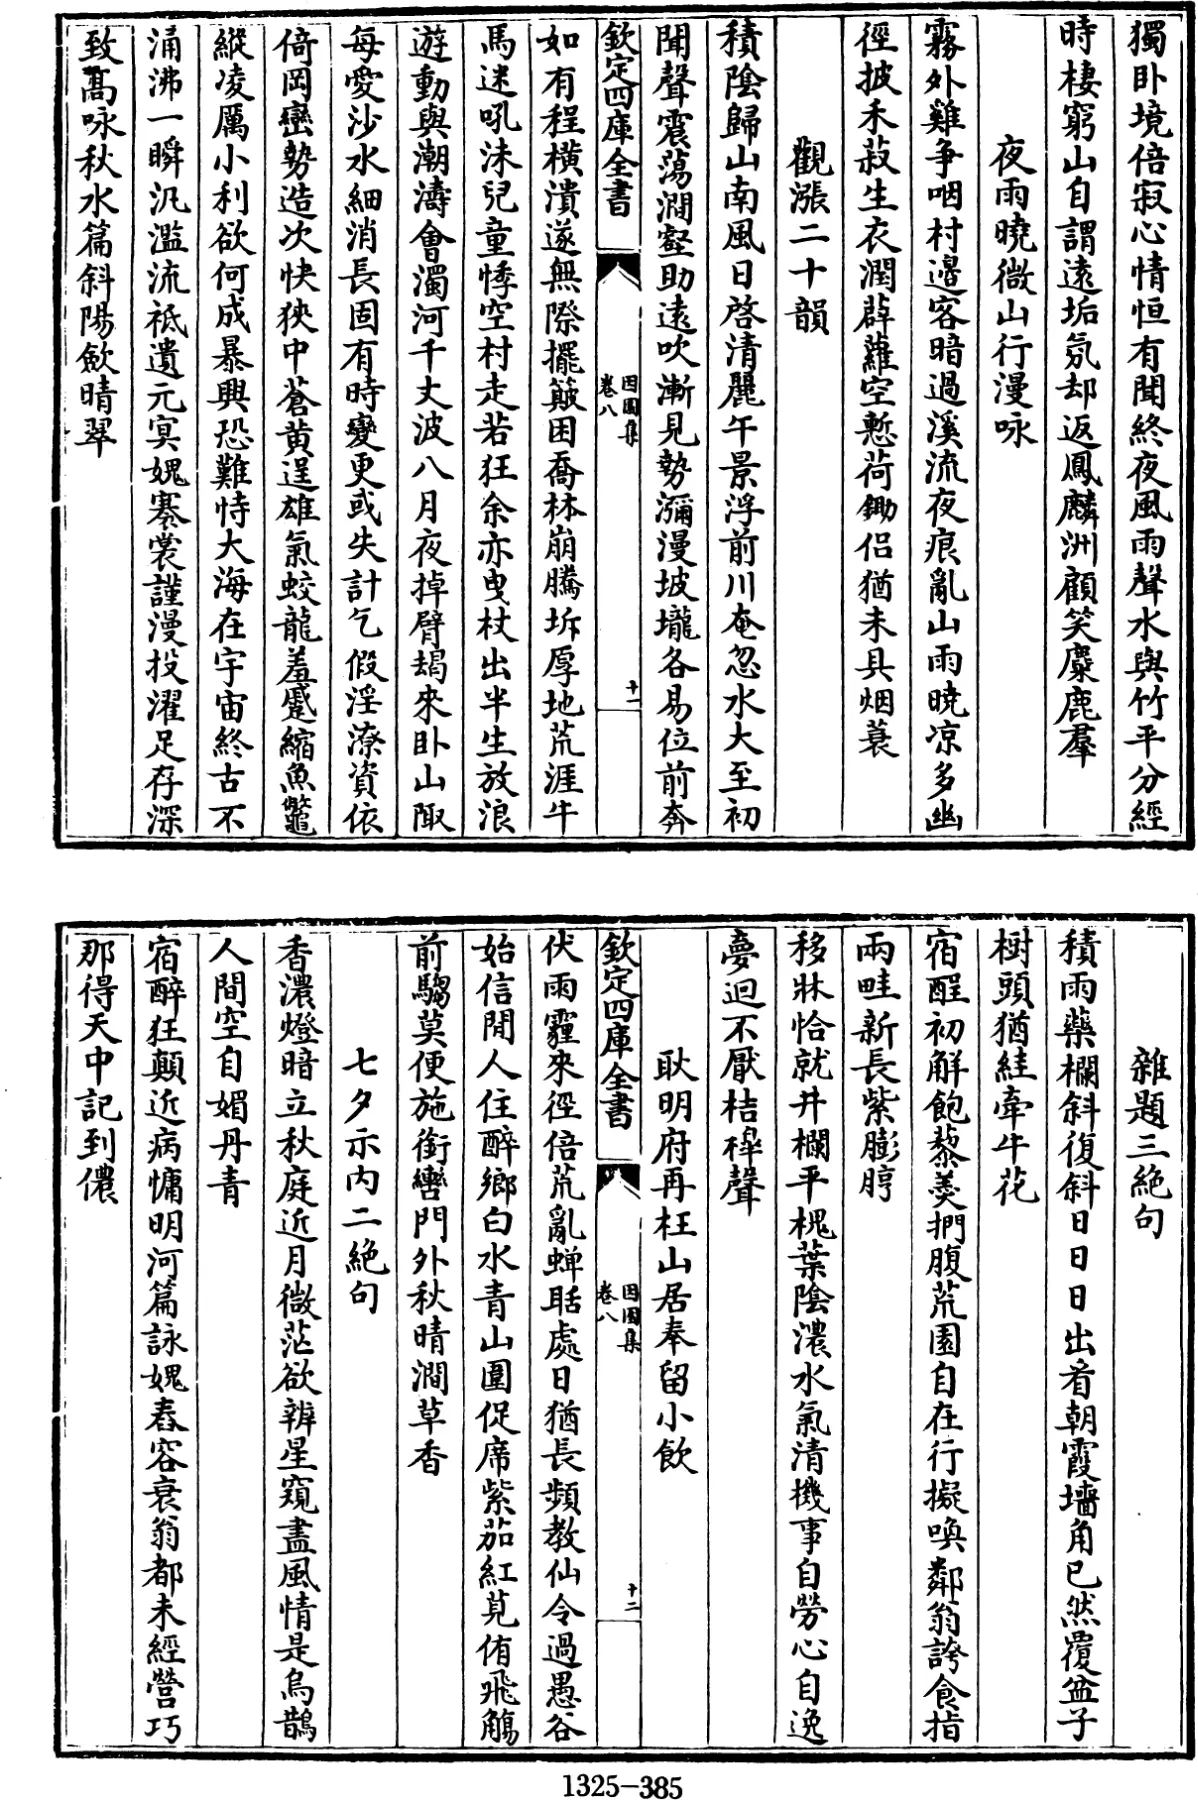 獨卧境倍寂心情恒有聞終夜風雨聲水與竹平分經
時棲窮山自謂遠垢氛却返鳳麟洲顧笑麋鹿羣
夜雨曉微山行漫咏
霧外雞爭咽村邊客暗過溪流夜痕亂山雨曉凉多幽
徑披禾菽生衣潤薜蘿空慙荷鋤侣猶未具烟蓑
觀漲二十韻
積陰歸山南風日啓清麗午景浮前川奄忽水大至初
聞聲震蕩澗壑助遠吹漸見勢瀰漫坡壠各易位前奔
欽定四庫全書
因園集
卷八
十一
如有程橫潰遂無際擺簸困喬林崩騰坼厚地荒涯牛
馬迷吼沫兒童悸空村走若狂余亦曳杖出半生放浪
遊動與潮濤會濁河千丈波八月夜掉臂朅來卧山陬
每愛沙水細消長固有時變更或失計乞假淫潦資依
倚岡巒勢造次快狹中蒼黄逞雄氣蛟龍羞蹙縮魚鼈
縱凌厲小利欲何成暴興恐難恃大海在宇宙終古不
涌沸一瞬汎濫流祗遺元冥媿褰裳謹漫投濯足存深
致髙咏秋水篇斜陽歛晴翠
雜題三絶句
積雨藥欄斜復斜日日日出看朝霞墻角已然覆盆子
樹頭猶絓牽牛花
宿酲初解飽藜羮捫腹荒園自在行擬喚鄰翁誇食指
兩畦新長紫膨脝
移牀恰就井欄平槐葉陰濃水氣清機事自勞心自逸
夢迴不厭桔槹聲
耿明府再枉山居奉留小飲
欽定四庫全書
因園集
卷八
十二
伏雨霾來徑倍荒亂蝉聒處日猶長頻教仙令過愚谷
始信閒人住醉鄉白水青山圍促席紫茄紅莧侑飛觴
前騶莫便施銜轡門外秋晴澗草香
七夕示内二絶句
香濃燈暗立秋庭近月微茫欲辨星窺盡風情是烏鵲
人間空自媚丹青
宿醉狂顛近病慵明河篇詠媿舂容衰翁都未經營巧
那得天中記到儂
1325-385